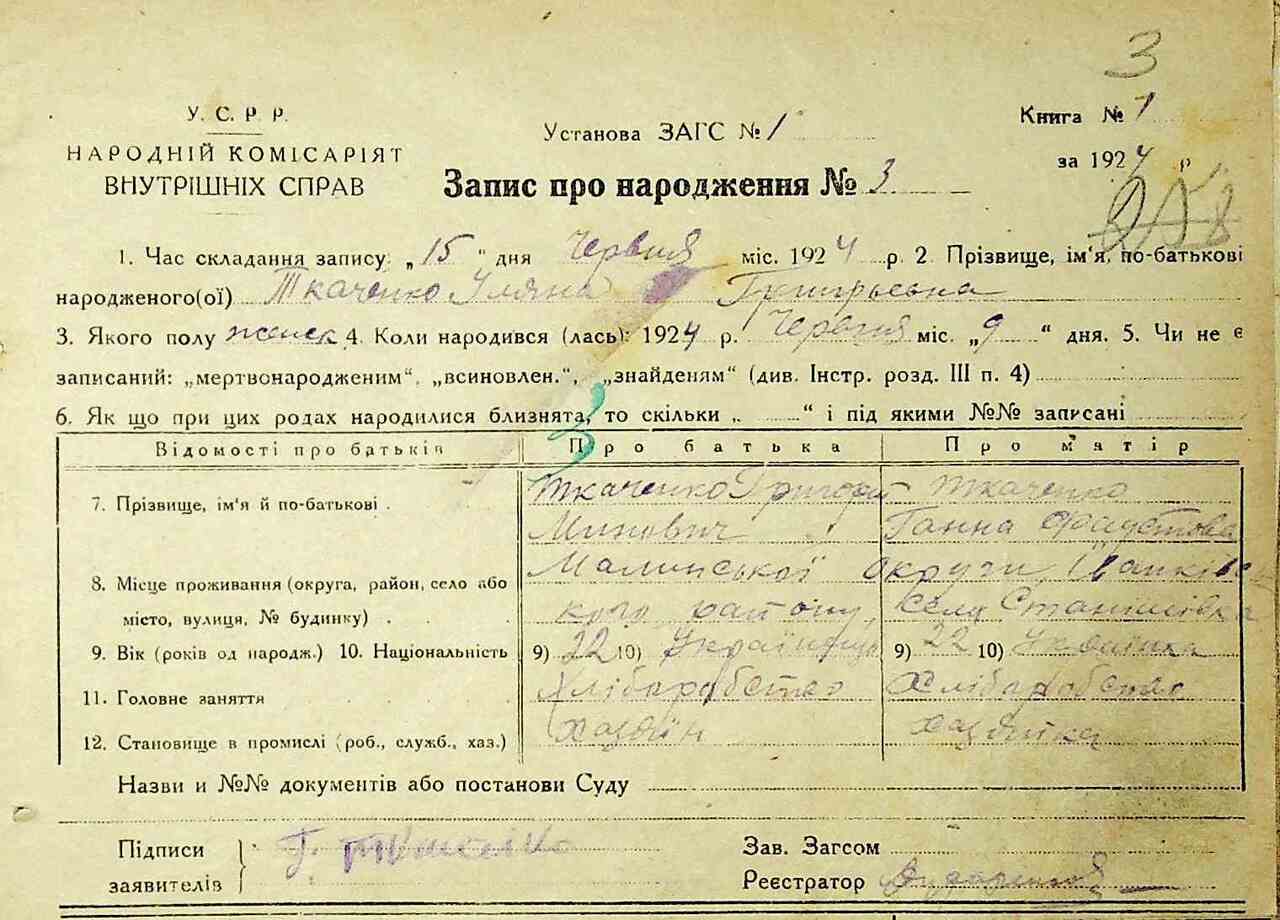 3
У. С. Р. Р.
НАРОДНІЙ КОМІСАРІЯТ
ВНУТРІШНІХ СПРАВ
Установа ЗАГС № 1
Запис про народження № 3.
Книга № 1
за 1924 р
1. Час складання запису: „15" дня Червня міс. 1924 р. 2. Прізвище, ім'я, по-батькові
народженого(ої) Ткаченко Уляна Григорьевна
3. Якого полу женск 4. Коли народився (лась): 1924 р. Червня міс. „9" дня. 5. Чи не є
записаний: „мертвонародженим", „всиновлен.", „знайденям" (див. Інстр. розд. III п. 4)
6. Як що при цих родах народилися близнята, то скільки „ " і під якими №№ записані
3
Відомості про батьків Про батька Про м'атір
7. Прізвище, ім'я й по-батькові . Ткаченко Григорій Ткаченко
Минович Ганна Фаустова
8. Місце проживання (округа, район, село або Малинської округи, Іванківс
місто, вулиця, № будинку) . . кого району села Станішівка
9. Вік (років од народж.) 10. Національність 9) 22 10) Українець 9) 22 10) Українка
11. Головне заняття Хліборобство Хліборобство
12. Становище в промислі (роб., служб., хаз.) хазяїн хазяйка
Назви и №№ документів або постанови Суду
Підписи
заявителів
Г. Ткаченко
Зав. Загсом
Реєстратор